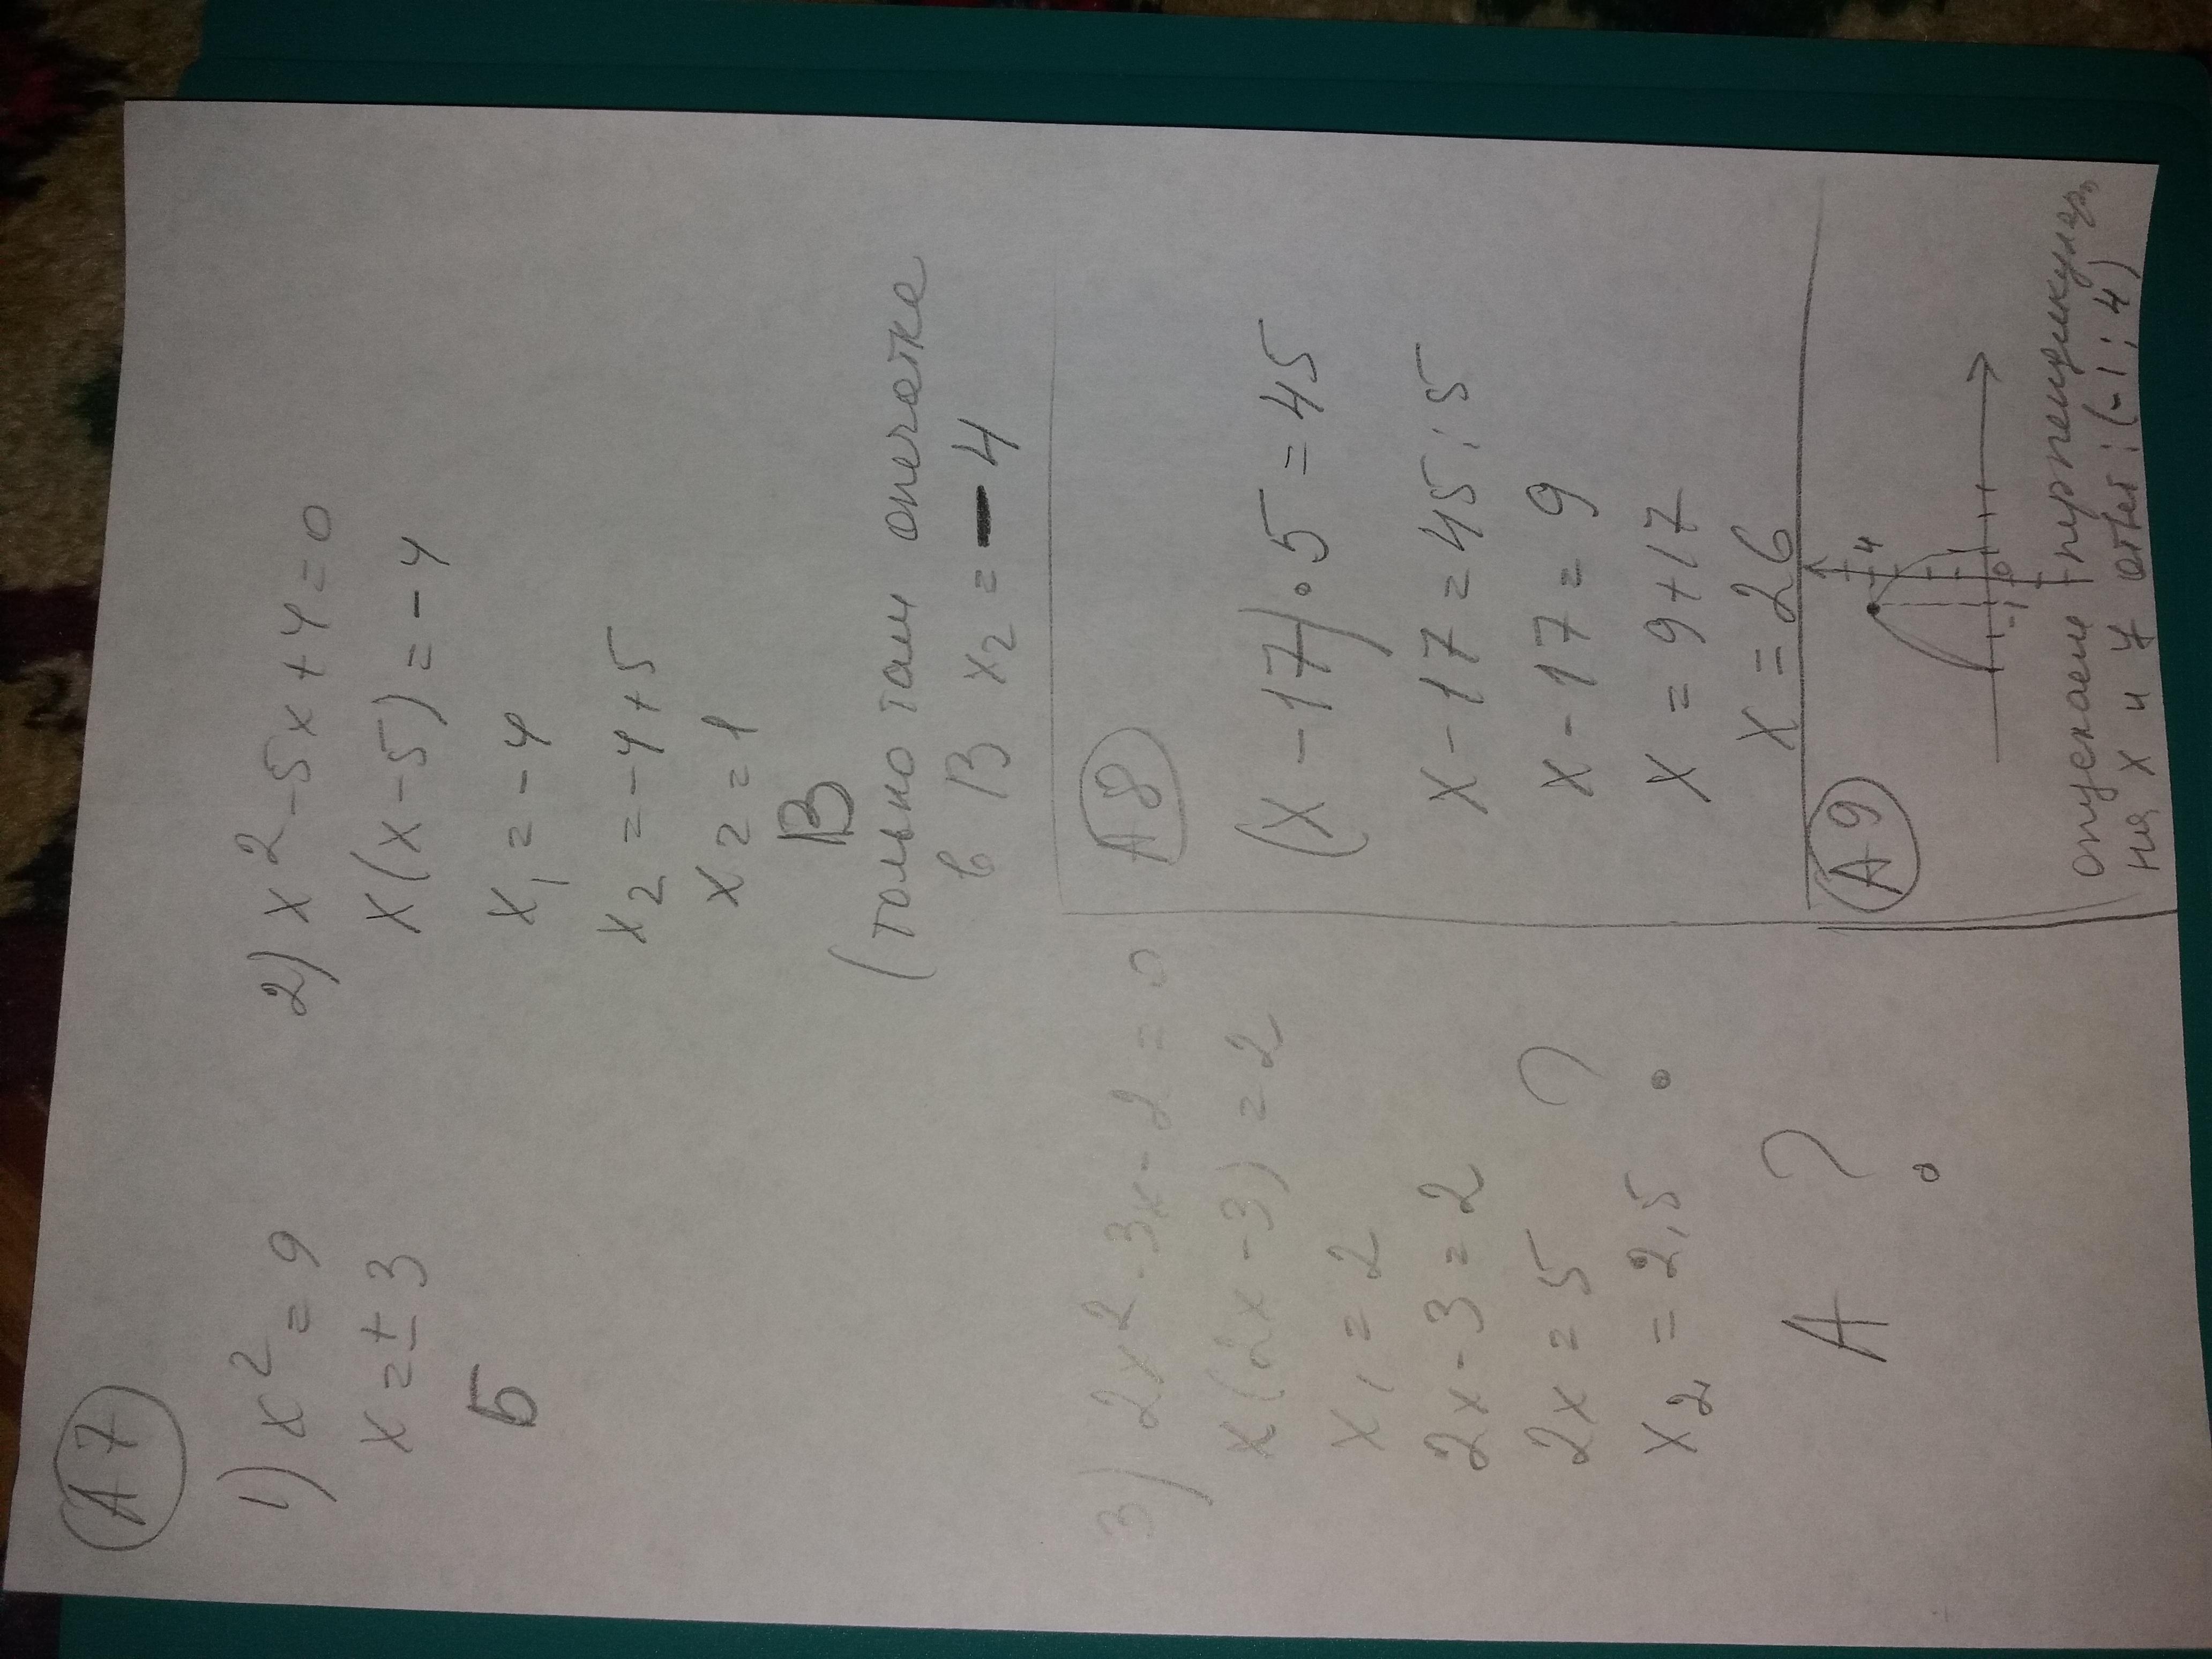 А7
1) x² = 9
x = ± 3
Б
2) x² - 5x + 4 = 0
x(x - 5) = -4
x₁ = -4
x₂ = -4 + 5
x₂ = 1
В
(только там опечатка
в В x₂ = -4
3) 2x² - 3x - 2 = 0
x(2x - 3) = 2
x₁ = 2
2x - 3 = 2
2x = 5
x₂ = 2,5
?
А ?
А8
(x - 17) · 5 = 45
x - 17 = 45 : 5
x - 17 = 9
x = 9 + 17
x = 26
А9
4
1
-1 0
опускаем перпендикуляр
на x и y ответ: (-1; 4)